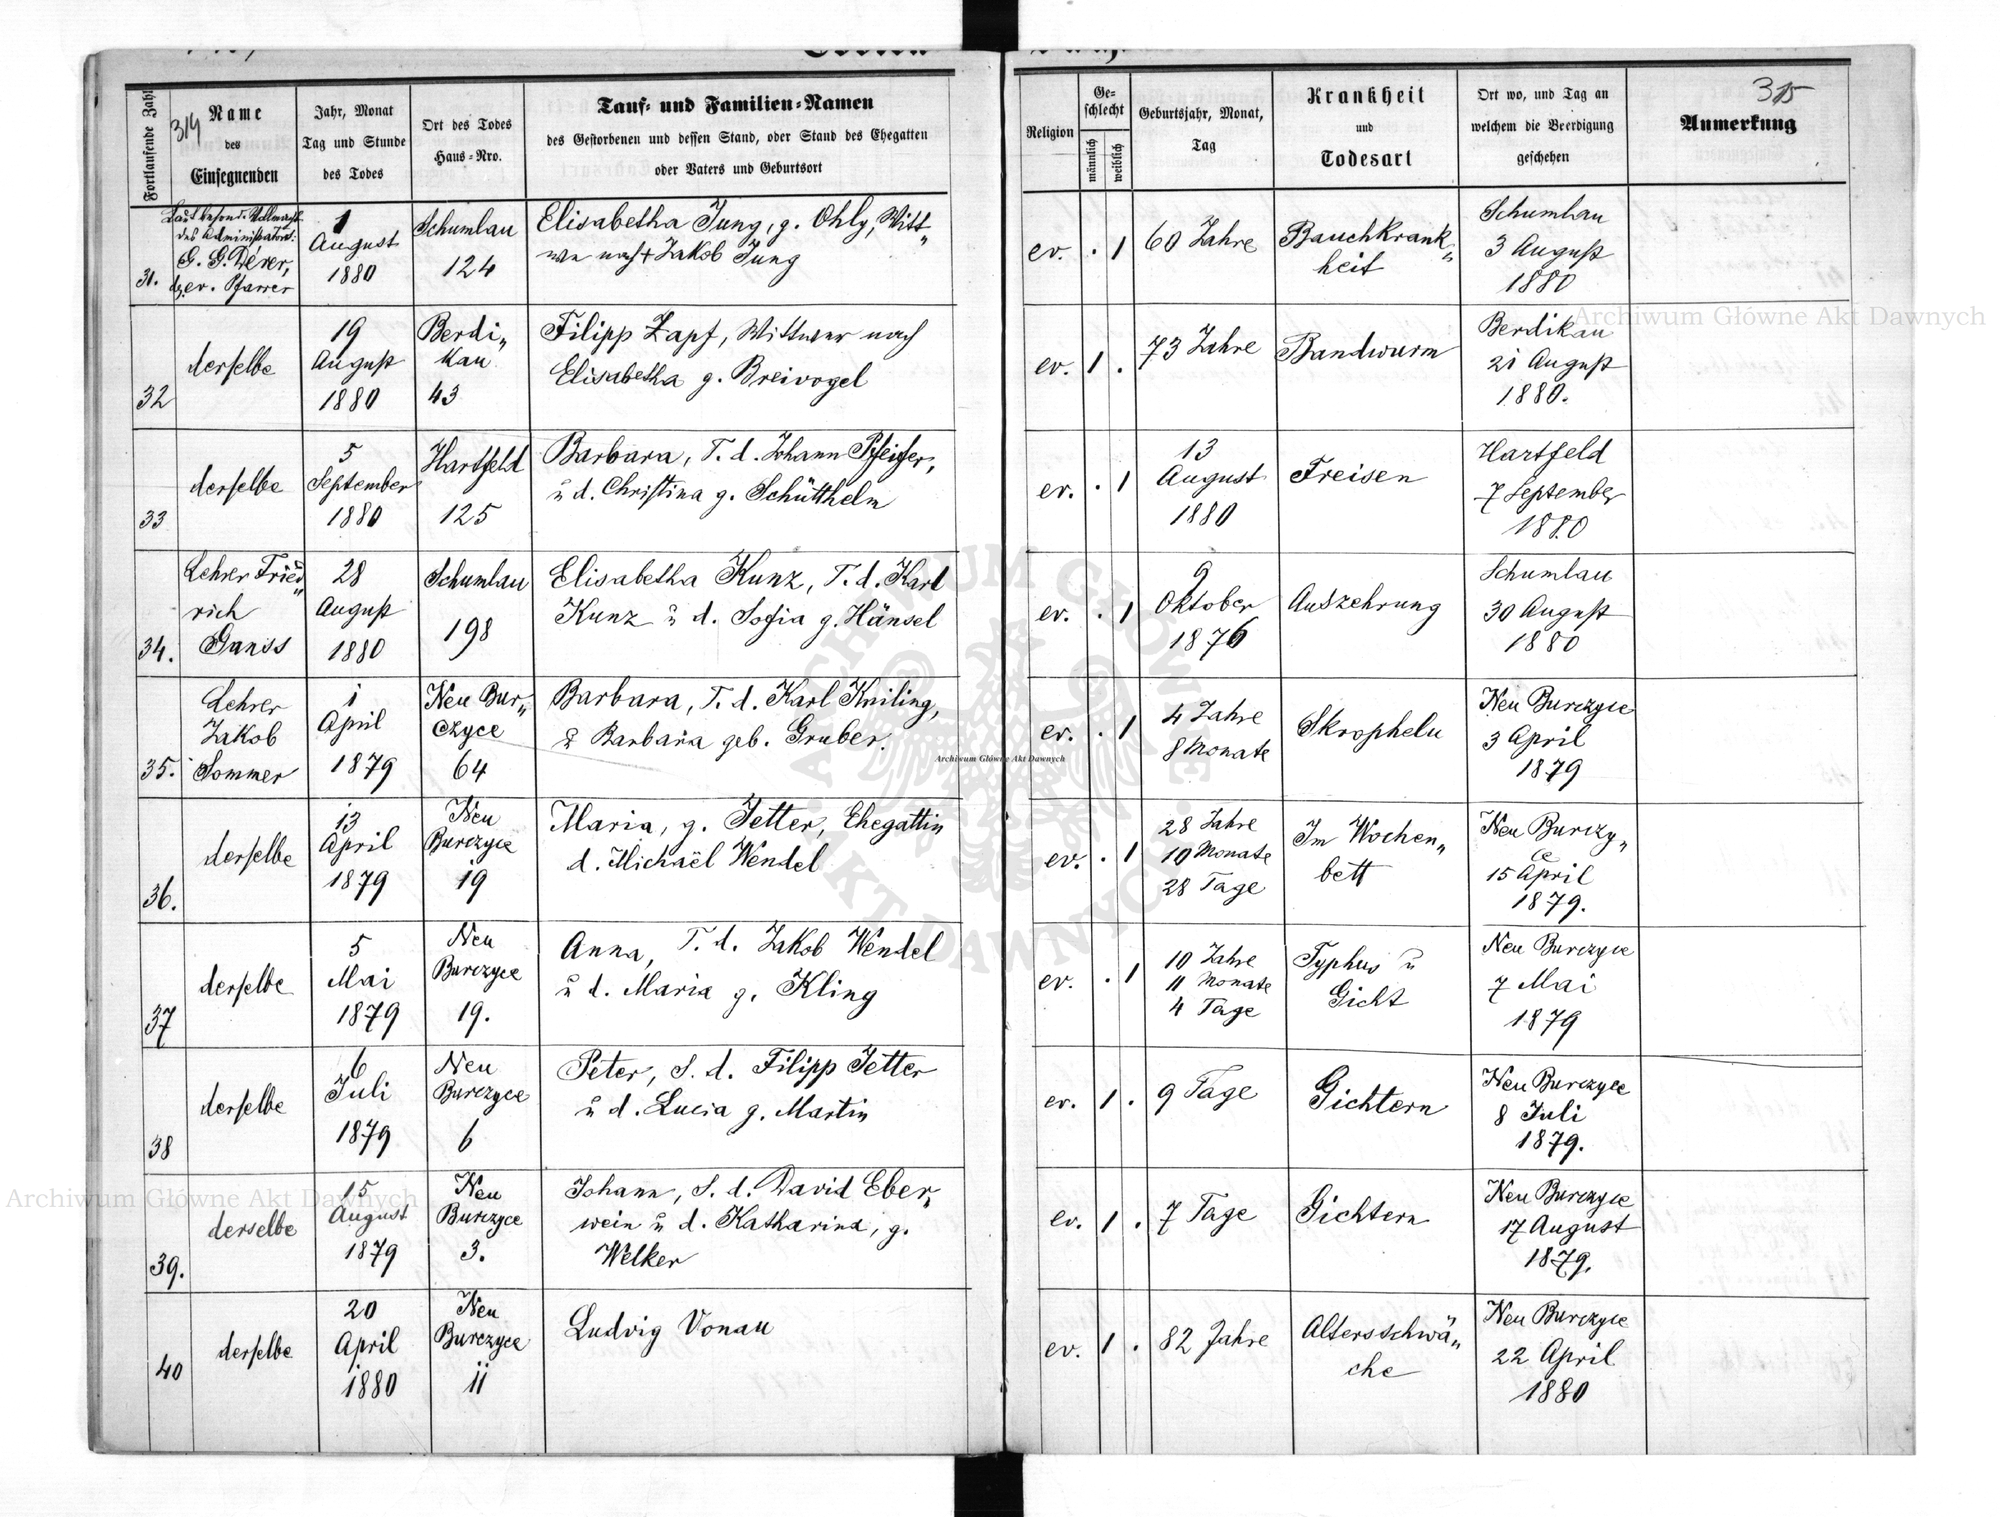 314
315
Fortlaufende Zahl
Name
des
Einsegnenden
Jahr, Monat
Tag und Stunde
des Todes
Ort des Todes
Haus-Nro.
Tauf- und Familien-Namen
des Gestorbenen und dessen Stand, oder Stand des Ehegatten
oder Vaters und Geburtsort
Religion
Ge-
schlecht
männlich
weiblich
Geburtsjahr, Monat,
Tag
Krankheit
und
Todesart
Ort wo, und Tag an
welchem die Beerdigung
geschehen
Anmerkung
31.
Laut besond. Vollmacht
des Administrators:
G. G.
ev. Pfarrer
1
August
1880
Schumlau
124
Elisabetha Jung, g. Ohly, Witt„
we nach + Jakob Jung
ev. . 1
60 Jahre
Bauchkrank„
heit
Schumlau
3 August
1880
32
derselbe
19
August
1880
Berdi„
kau
43
Filipp Zapf, Wittwer nach
Elisabetha g. Breivogel
ev. 1 .
73 Jahre
Bandwurm
Berdikau
21 August
1880.
33
derselbe
5
September
1880
Hartfeld
125
Barbara, T. d. Johann Pfeifer,
u d. Christina g. Schütthelm
ev. . 1
13
August
1880
Freisen
Hartfeld
7 September
1880
34.
Lehrer Fried„
rich
Ganss
28
August
1880
Schumlau
198
Elisabetha Kunz, T. d. Karl
Kunz u d. Sofia g. Hänsel
ev. . 1
9
Oktober
1876
Auszehrung
Schumlau
30 August
1880
35.
Lehrer
Jakob
Sommer
1
April
1879
Neu Bur„
czyce
64
Barbara, T. d. Karl Kniling,
u Barbara geb. Gruber.
ev. . 1
4 Jahre
8 Monate
Skropheln
Neu Burczyce
3 April
1879
36.
derselbe
13
April
1879
Neu
Burczyce
19
Maria, g. Jetter, Ehegattin
d. Michaël Wendel
ev. . 1
28 Jahre
10 Monate
28 Tage
Im Wochen„
bett
Neu Burczy„
ce
15 April
1879.
37
derselbe
5
Mai
1879
Neu
Burczyce
19.
Anna, T. d. Jakob Wendel
u d. Maria g. Kling
ev. . 1
10 Jahre
11 Monate
4 Tage
Typhus u
Gicht
Neu Burczyce
7 Mai
1879
38
derselbe
6
Juli
1879
Neu
Burczyce
6
Peter, S. d. Filipp Jetter
u d. Lucia g. Martin
ev. 1 .
9 Tage
Gichtern
Neu Burczyce
8 Juli
1879.
39.
derselbe
15
August
1879
Neu
Burczyce
3.
Johann, S. d. David Eber„
wein u d. Katharina, g.
Welker
ev. 1 .
7 Tage
Gichtern
Neu Burczyce
17 August
1879.
40
derselbe
20
April
1880
Neu
Burczyce
11
Ludvig Vonau
ev. 1 .
82 Jahre
Altersschwä„
che
Neu Burczyce
22 April
1880
Archiwum Główne Akt Dawnych
Archiwum Główne Akt Dawnych
Archiwum Główne Akt Dawnych
ARCHIWUM GŁÓWNE AKT DAWNYCH